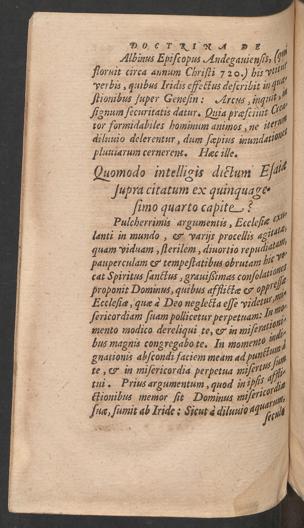 DOCTRINA DE
Albinus Episcopus Andegauiensis, (qui
floruit circa annum Christi 720.) his vtitur
verbis, quibus Iridis effectus describit in quæ-
stionibus super Genesin: Arcus, inquit, in
signum securitatis datur. Quia præsciuit Crea-
tor formidabiles hominum animos, ne iterum
diluuio delerentur, dum sæpius inundationes
pluuiarum cernerent. Hæc ille.
Quomodo intelligis dictum Esaiæ
supra citatum ex quinquage-
simo quarto capite?
Pulcherrimis argumentis, Ecclesiæ exu-
lanti in mundo, & varijs procellis agitatæ,
quam viduam, sterilem, diuortio repudiatam,
pauperculam & tempestatibus obrutam hic vo-
cat Spiritus sanctus, grauissimas consolationes
proponit Dominus, quibus afflictæ & oppressæ
Ecclesiæ, quæ à Deo neglecta esse videtur, mi-
sericordiam suam pollicetur perpetuam: In mo-
mento modico dereliqui te, & in miserationi-
bus magnis congregabo te. In momento indi-
gnationis abscondi faciem meam ad punctum à
te, & in misericordia perpetua misertus sum
tui. Prius argumentum, quod in ipsis affli-
ctionibus memor sit Dominus misericordiæ
suæ, sumit ab Iride: Sicut à diluuio aquarum,
secula